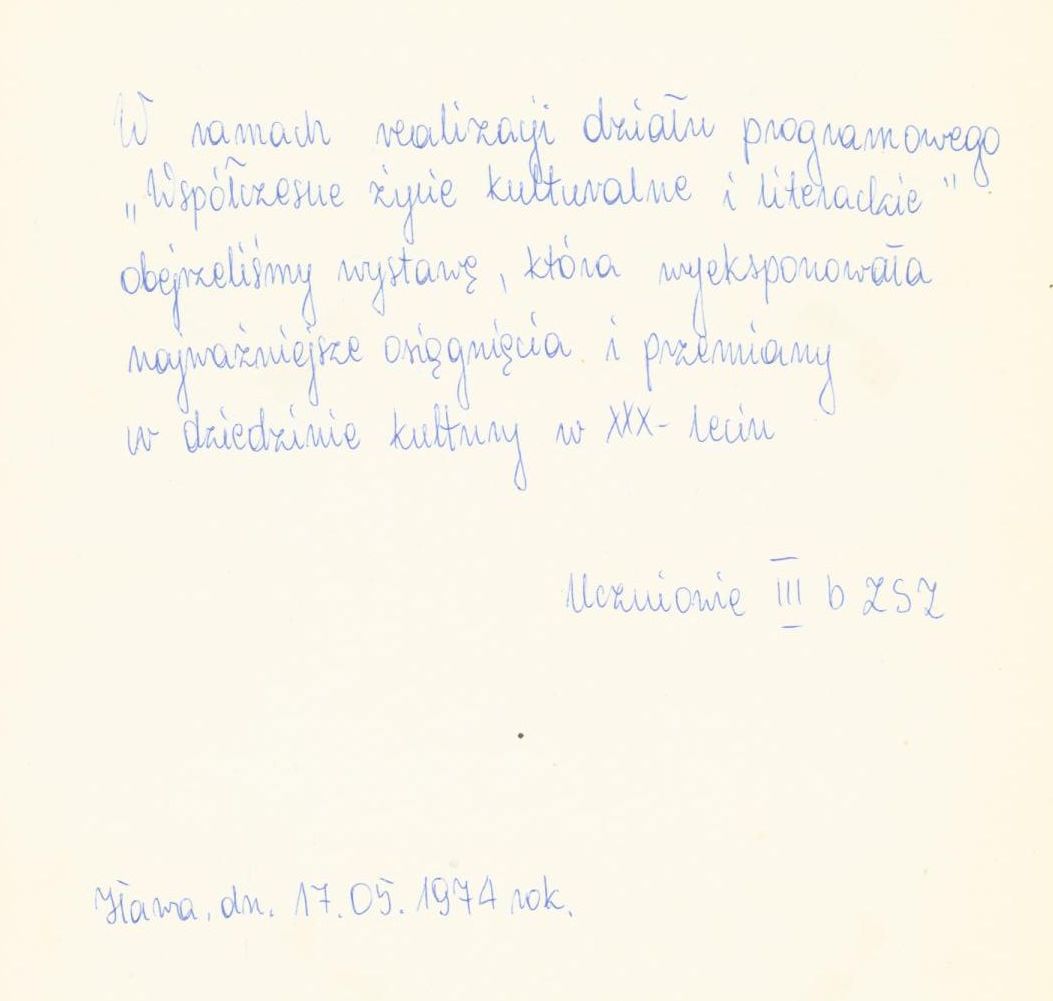 W ramach realizacji działu programowego
„Współczesne życie kulturalne i literackie”
obejrzeliśmy wystawę, która wyeksponowała
najważniejsze osiągnięcia i przemiany
w dziedzinie kultury w XXX-leciu
Uczniowie III b ZSZ
Iława, dn. 17.05.1974 rok.